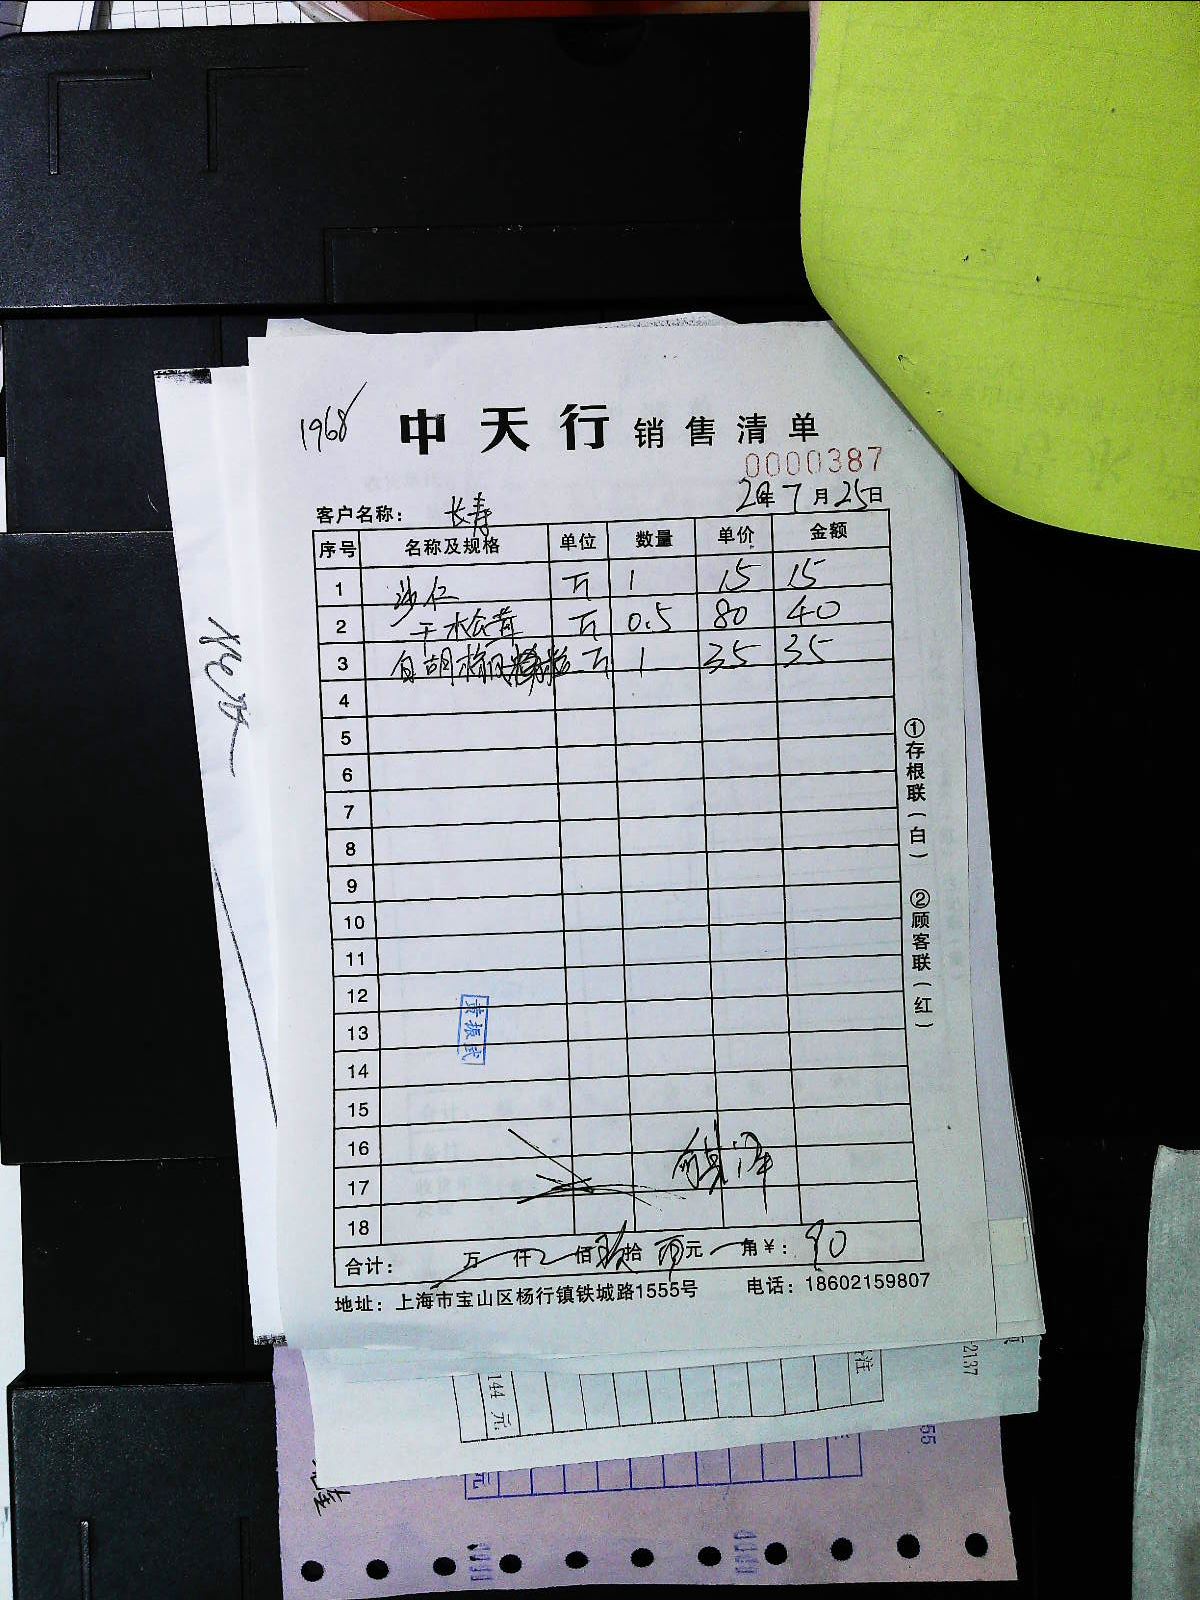 1968
中天行 销售清单
0000387
20年 7月 25日
客户名称： 长寿
序号 名称及规格 单位 数量 单价 金额
1 沙仁 斤 1 15 15
2 干木会茸 斤 0.5 80 40
3 白胡椒 斤 1 35 35
4
5
6
7
8
9
10
11
12
13
14
15
16
17
18
黄振武
合计： 万 仟 佰 玖拾 元 角 ￥： 90
地址：上海市宝山区杨行镇铁城路1555号 电话：18602159807
①存根联（白）
②顾客联（红）
144 元
备注
2137
55
元